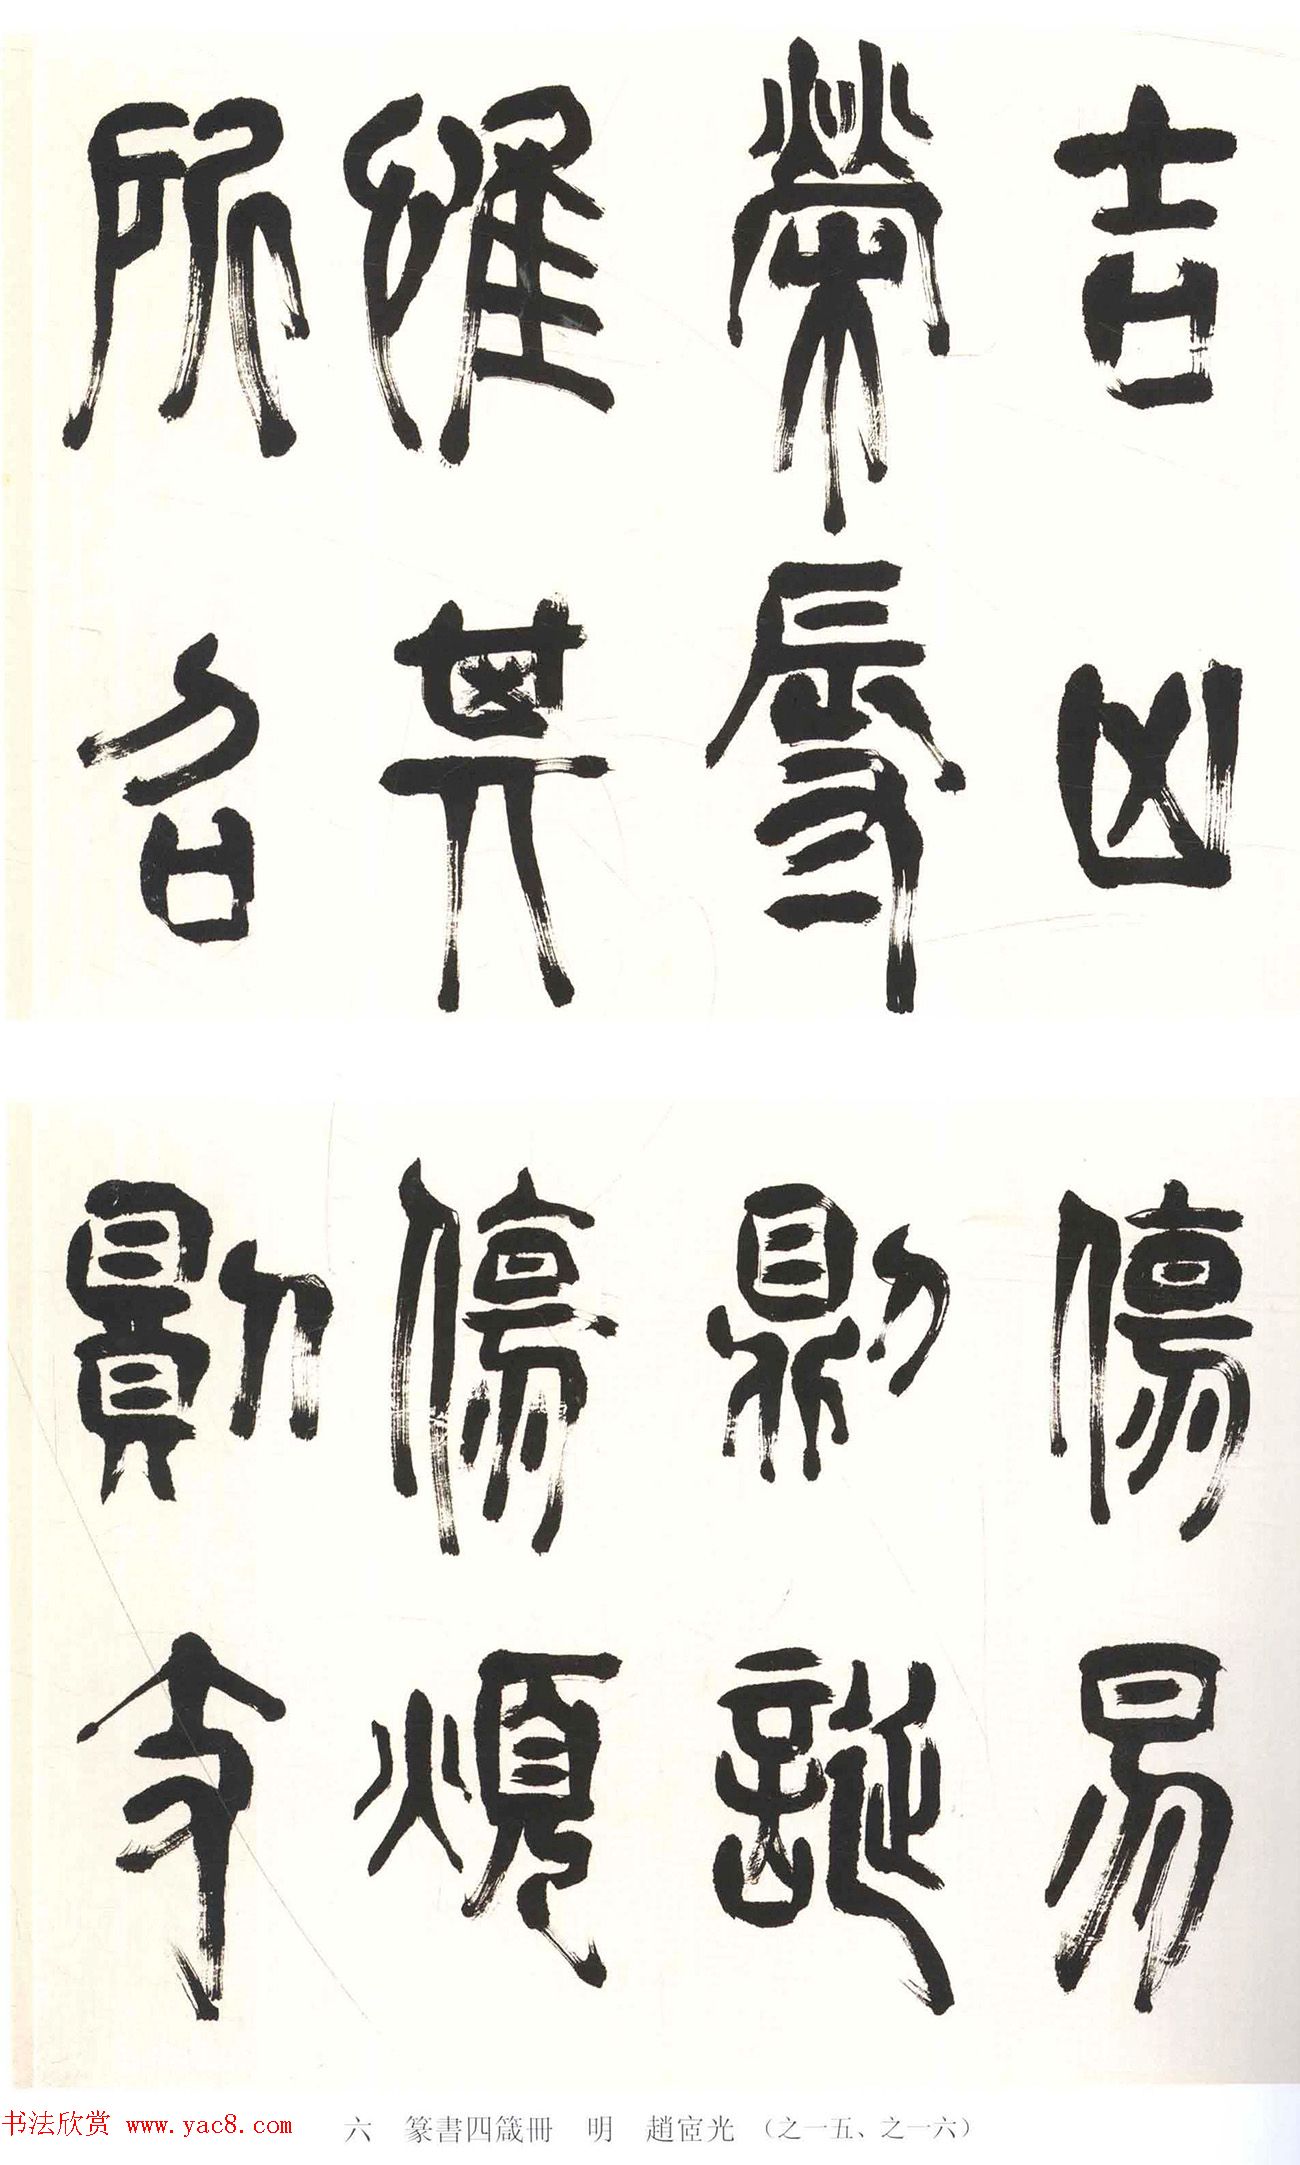 吉凶
榮辱
惟其
所召
傷易
則誕
傷煩
則支
六 篆書四箴冊 明 趙宧光 (之一五、之一六)
书法欣赏 www.yac8.com